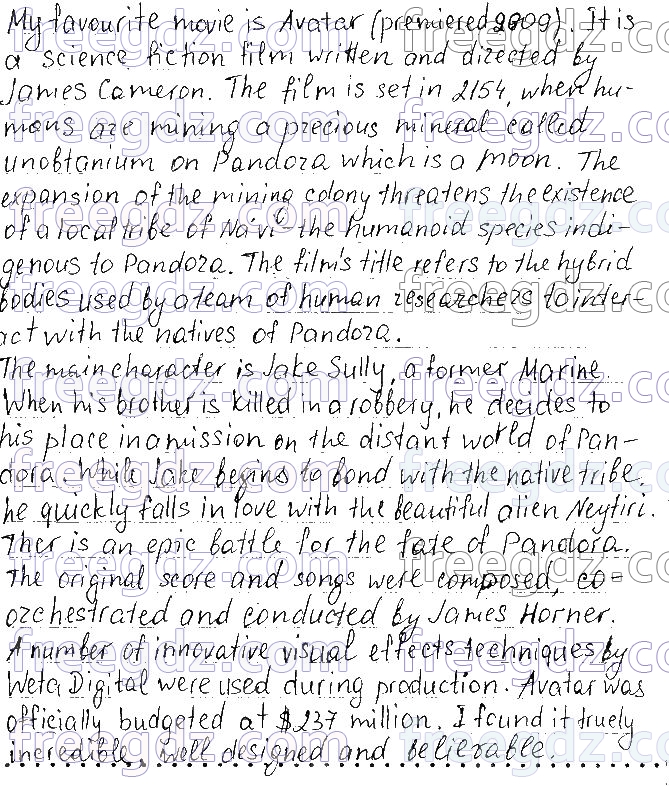 My favourite movie is Avatar (premiered 2009). It is
a science fiction film written and directed by
James Cameron. The film is set in 2154, when hu-
mans are mining a precious mineral called
unobtanium on Pandora which is a moon. The
expansion of the mining colony threatens the existence
of a local tribe of Na'vi - the humanoid species indi-
genous to Pandora. The film's title refers to the hybrid
bodies used by a team of human researchers to inter-
act with the natives of Pandora.
The main character is Jake Sully, a former Marine.
When his brother is killed in a robbery, he decides to
his place in a mission on the distant world of Pan-
dora. While Jake begins to bond with the native tribe,
he quickly falls in love with the beautiful alien Neytiri.
Ther is an epic battle for the fate of Pandora.
The original score and songs were composed, co-
orchestrated and conducted by James Horner.
A number of innovative visual effects techniques by
Weta Digital were used during production. Avatar was
officially budgeted at $237 million. I found it truely
incredible, well designed and believable.